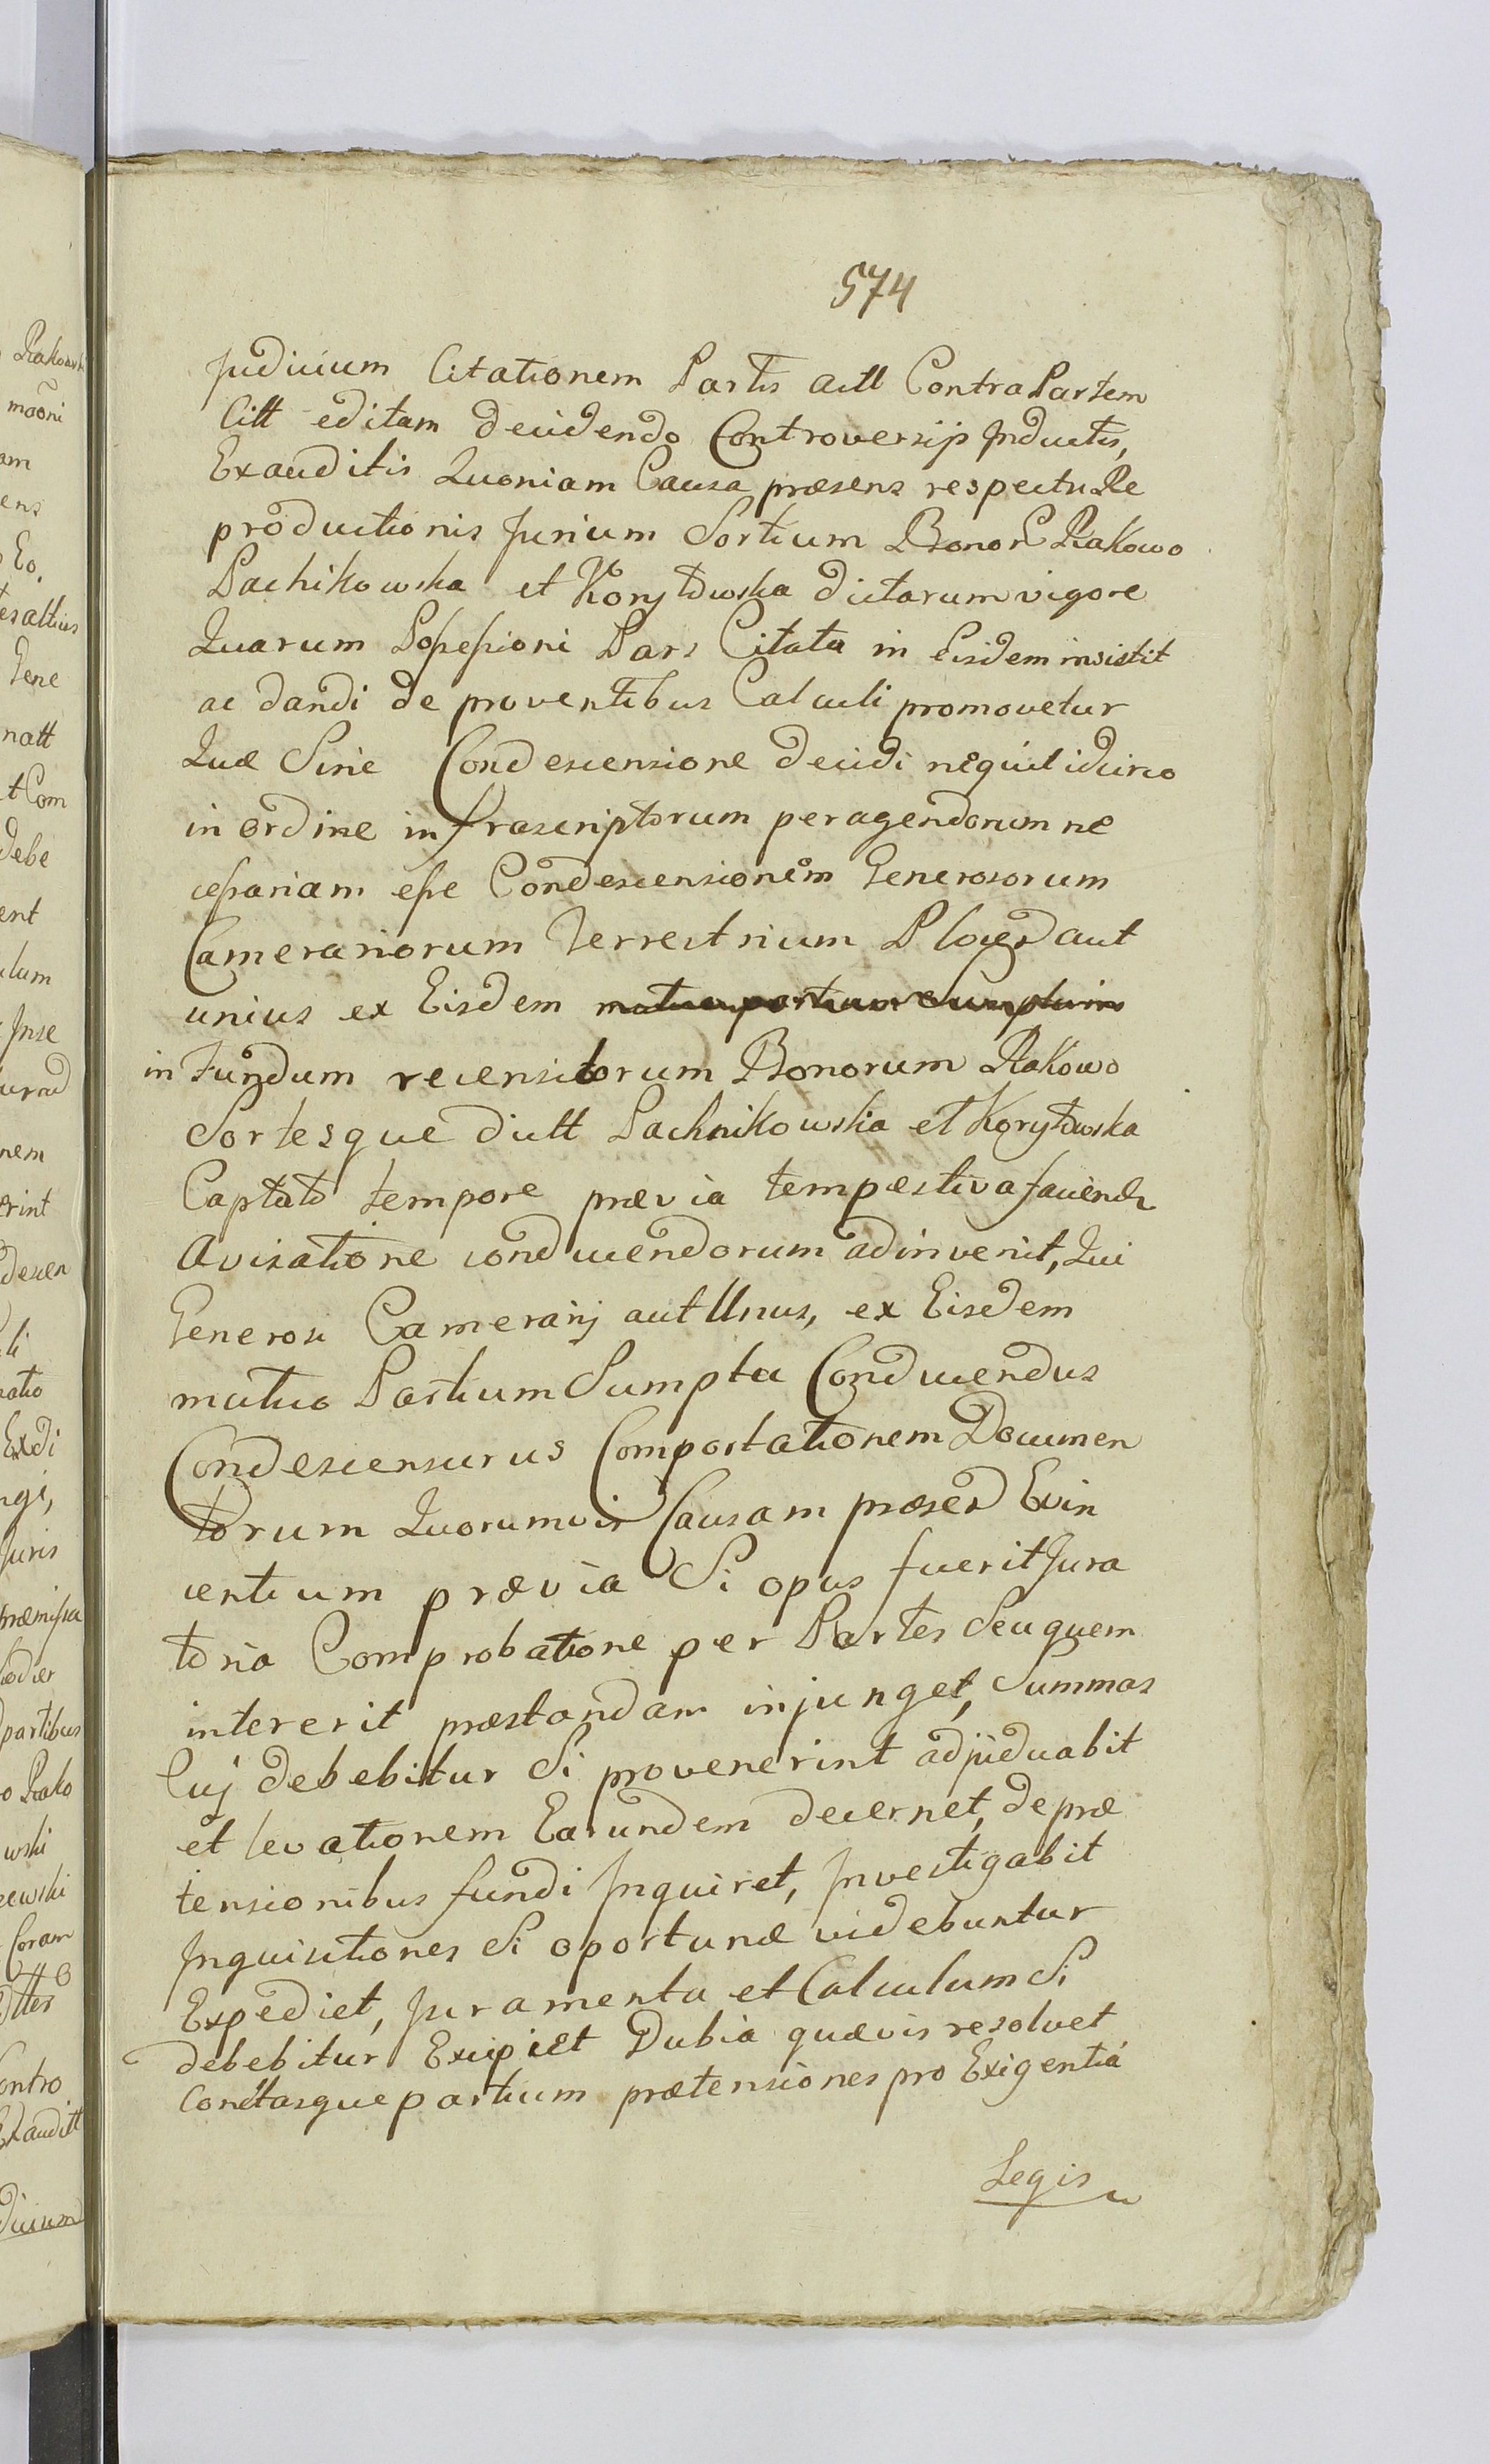 574
Judicium Citationem Partis actt Contra Partem
Citt editam decidendo Controversijs Inductis,
Exauditis Quoniam Causa præsens respectu Re
productionis Jurium Sortium Bonor Rakowo
Pachikowska et Korytowska dictarum vigore
Quarum Possessioni Pars Citata in Eisdem insistit
ac dandi de proventibus Calculi promovetur
Quæ Sine Condescensione decidi nequit idcirco
in ordine infrascriptorum peragendorum ne
cessariam esse Condescensionem Generosorum
Camerariorum Terrestrium Plocen aut
unius ex Eisdem mutuo partium Sumptu in
in Fundum recensitorum Bonorum Rakowo
Sortesque dictt Pachnikowska et Korytowska
Captato tempore prævia tempestiva faciend
Avisatione conducendorum adinvenit, Qui
Generosi Camerarij aut Unus, ex Eisdem
mutuo Partium Sumptu Conducendus
Condescensurus Comportationem Documen
torum Quorumvis Causam præsen Evin
centium prævia Si opus fuerit Jura
toria Comprobatione per Partes Seu quem
intererit præstandam injunget, Summas
Cuj debebitur Si provenerint adjudicabit
et levationem Earundem decernet, de præ
tensionibus fundi Inquiret, Investigabit
Inquisitiones Si oportunæ videbuntur
Expediet, Juramenta et Calculum Si
debebitur Excipiet Dubia quævis resolvet
Conctasque partium prætensiones pro Exigentiá
Legis